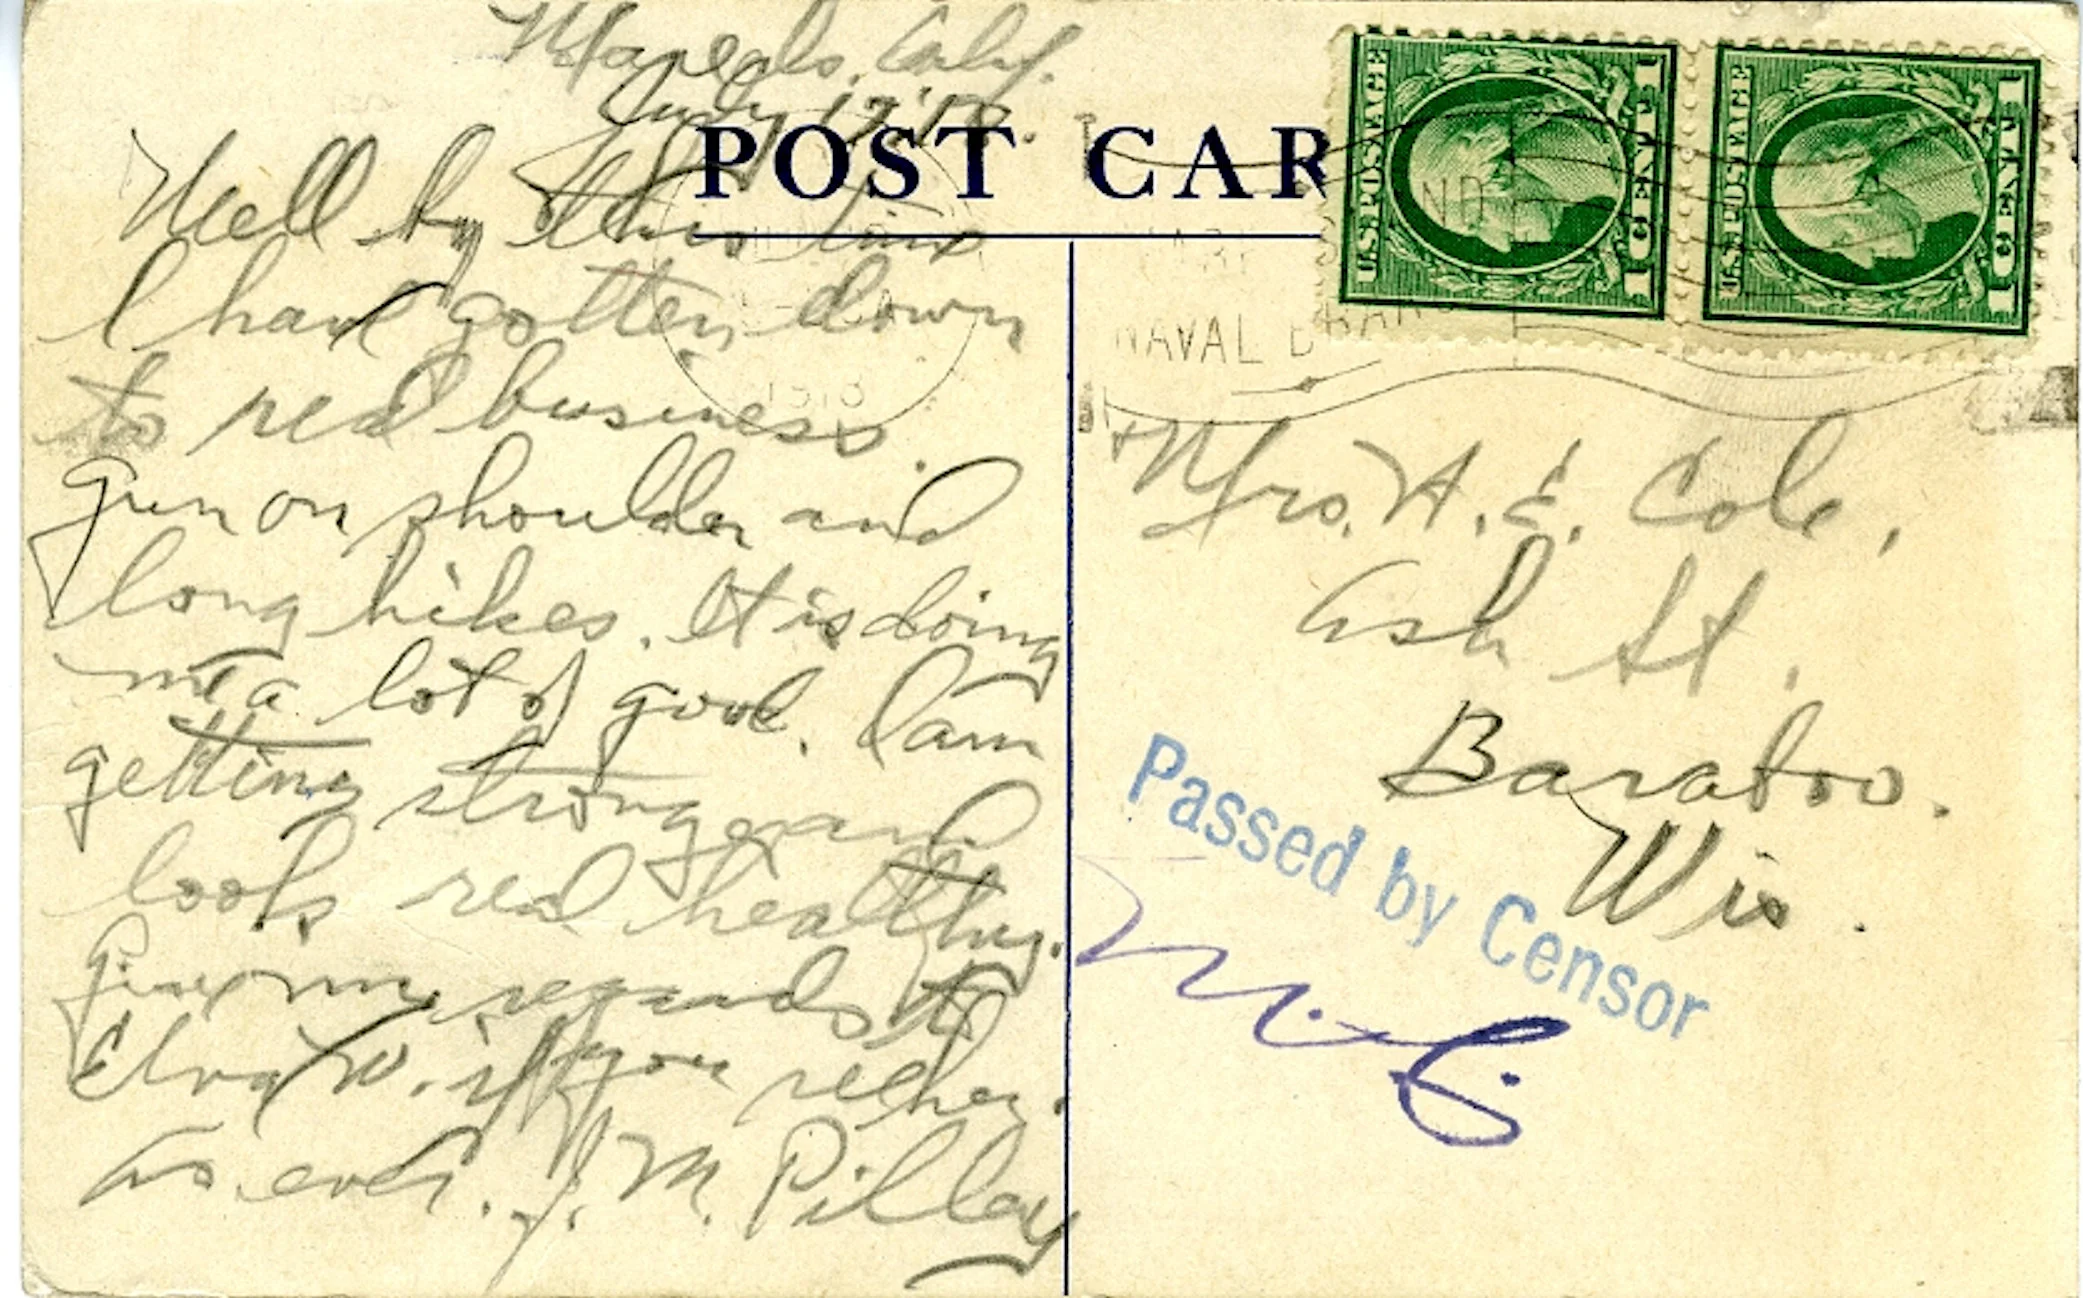 Calif.
July 17 '18.
POST CAR
Well by this time
I have gotten down
to real business.
Gun on shoulder and
long hikes. It is doing
me a lot of good. I am
getting stronger and
looks real healthy.
Give my regards to
Elva W. if you see her.
As ever. J. M. Pillay
U.S. POSTAGE
1 CENT 1
U.S. POSTAGE
1 CENT 1
NAVAL BRANC
1918
Mrs. A. E. Cole,
Ash St.
Baraboo.
Wis.
Passed by Censor